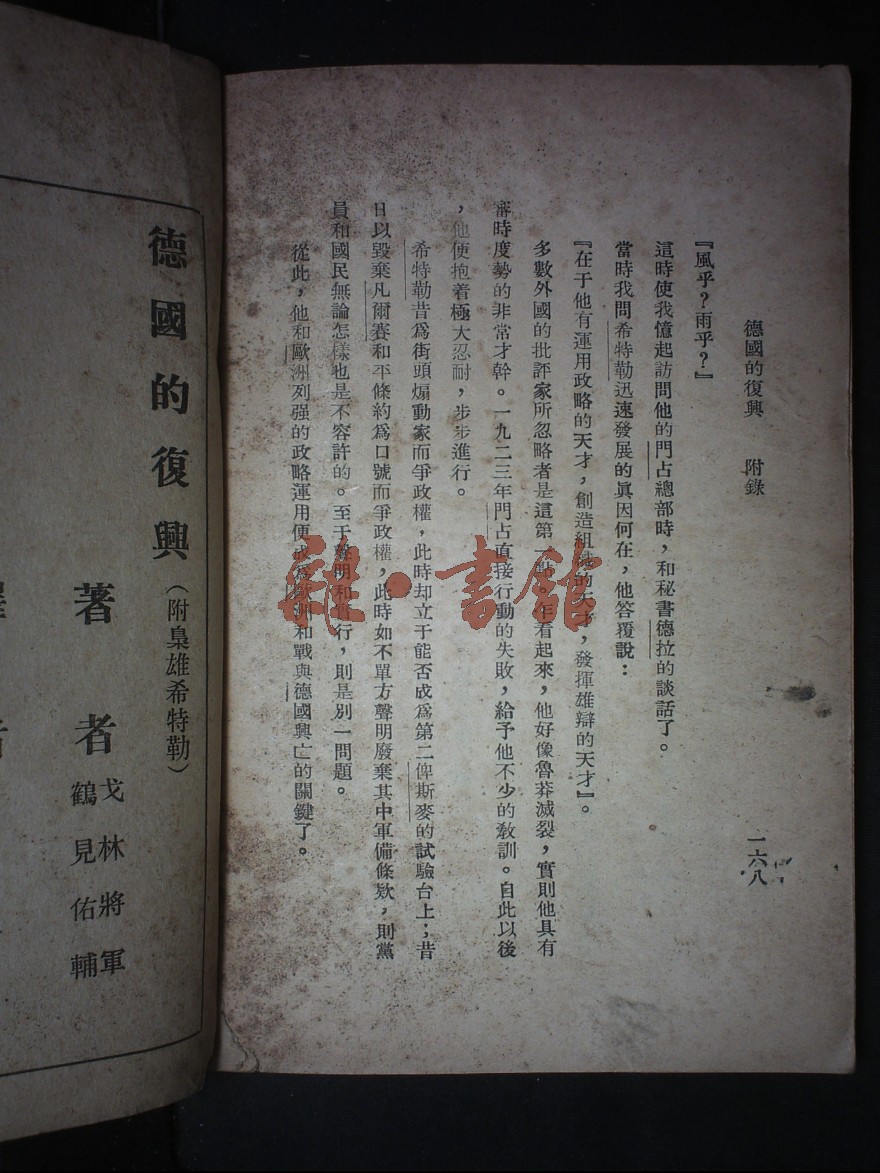 德國的復興　附錄
一六八
『風乎？雨乎？』
這時使我憶起訪問他的門占總部時，和秘書德拉的談話了。
當時我問希特勒迅速發展的眞因何在，他答覆說：
『在于他有運用政略的天才，創造組織的天才，發揮雄辯的天才』。
多數外國的批評家所忽略者是這第一點。乍看起來，他好像魯莽滅裂，實則他具有
審時度勢的非常才幹。一九二三年門占直接行動的失敗，給予他不少的敎訓。自此以後
，他便抱着極大忍耐，步步進行。
希特勒昔爲街頭煽動家而爭政權，此時却立于能否成爲第二俾斯麥的試驗台上；昔
日以毀棄凡爾賽和平條約爲口號而爭政權，此時如不單方聲明廢棄其中軍備條欵，則黨
員和國民無論怎樣也是不容許的。至于聲明和實行，則是別一問題。
從此，他和歐洲列强的政略運用便成爲歐洲和戰與德國興亡的關鍵了。
雜·書館
德國的復興（附梟雄希特勒）
著者
戈林將軍
鶴見佑輔